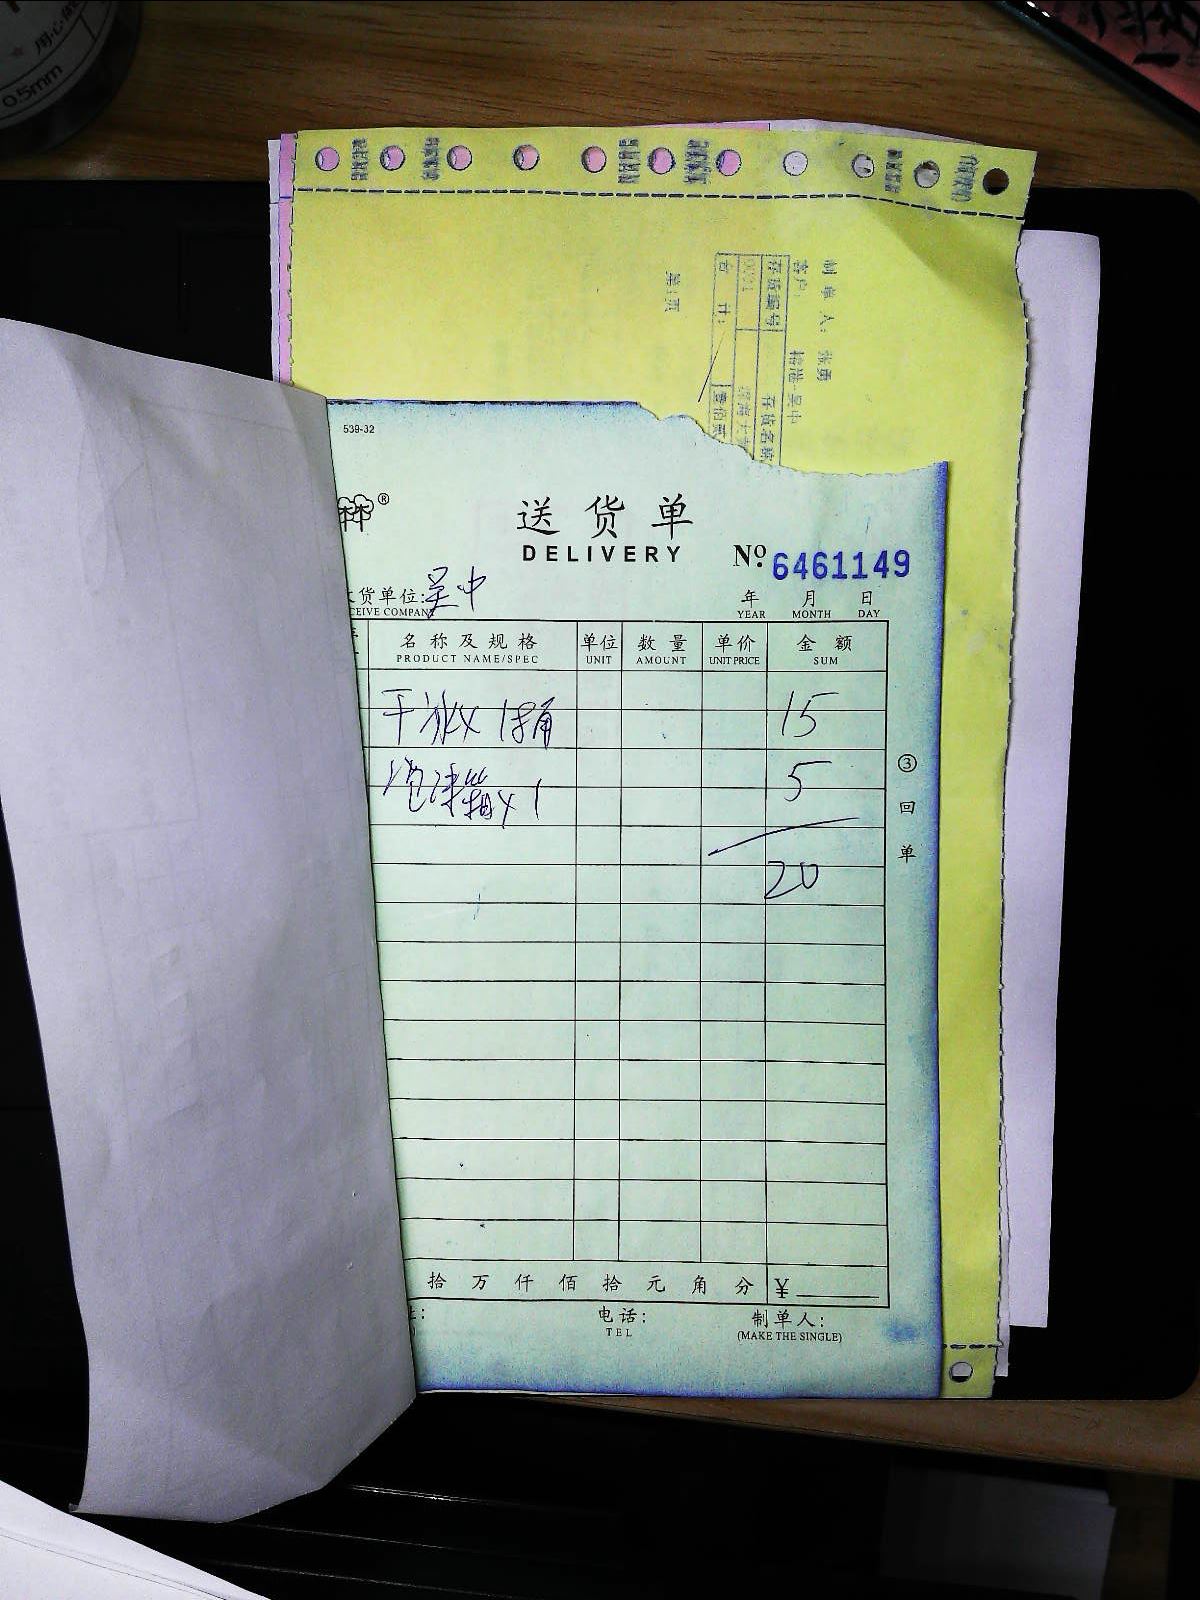 0.5mm
制单人: 张勇
客户:
吴中
存货编号
存货名称
0001
合计:
第1页
539-32
林®
送货单
DELIVERY
No. 6461149
货单位: 吴中
CEIVE COMPANY
年 月 日
YEAR MONTH DAY
名称及规格 单位 数量 单价 金额
PRODUCT NAME/SPEC UNIT AMOUNT UNIT PRICE SUM
干冰x1桶 15
泡沫箱x1 5
20
③回单
拾万仟佰拾元角分 ¥
电话: 制单人:
TEL (MAKE THE SINGLE)